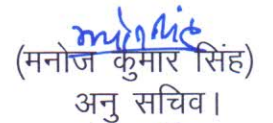 (मनोज कुमार सिंह)
अनु सचिव।